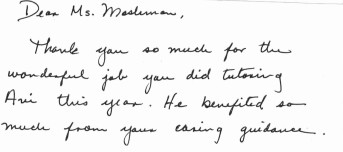 Dear Ms. Mosherman,
Thank you so much for the
wonderful job you did tutoring
Ari this year. He benefited so
much from your caring guidance.